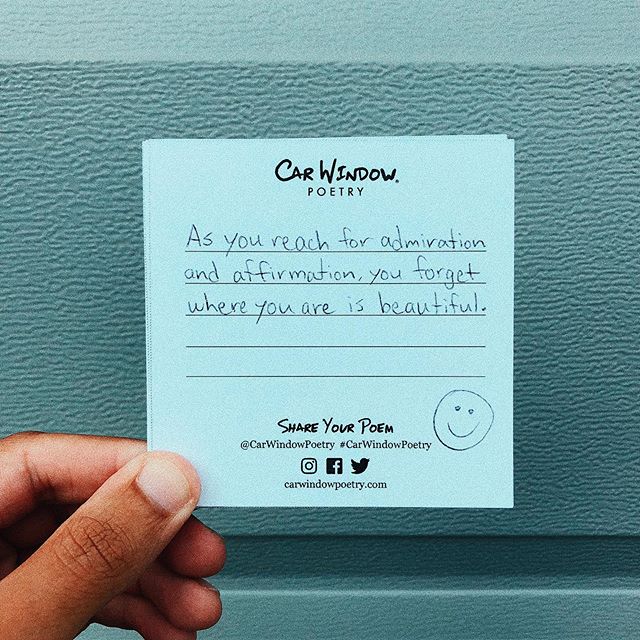 CAR WINDOW®
POETRY
As you reach for admiration
and affirmation, you forget
where you are is beautiful.
SHARE YOUR POEM
@CarWindowPoetry #CarWindowPoetry
carwindowpoetry.com